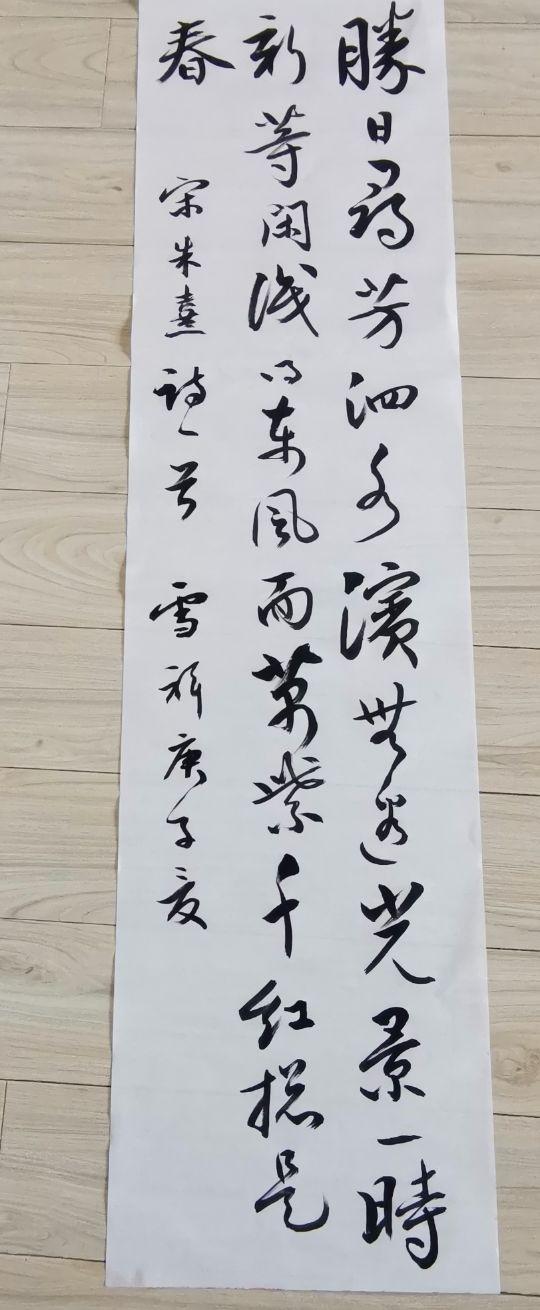 勝日尋芳泗水濱無邊光景一時
新等閑識得東風面萬紫千紅總是
春 宋朱熹詩一首 雪 庚子夏